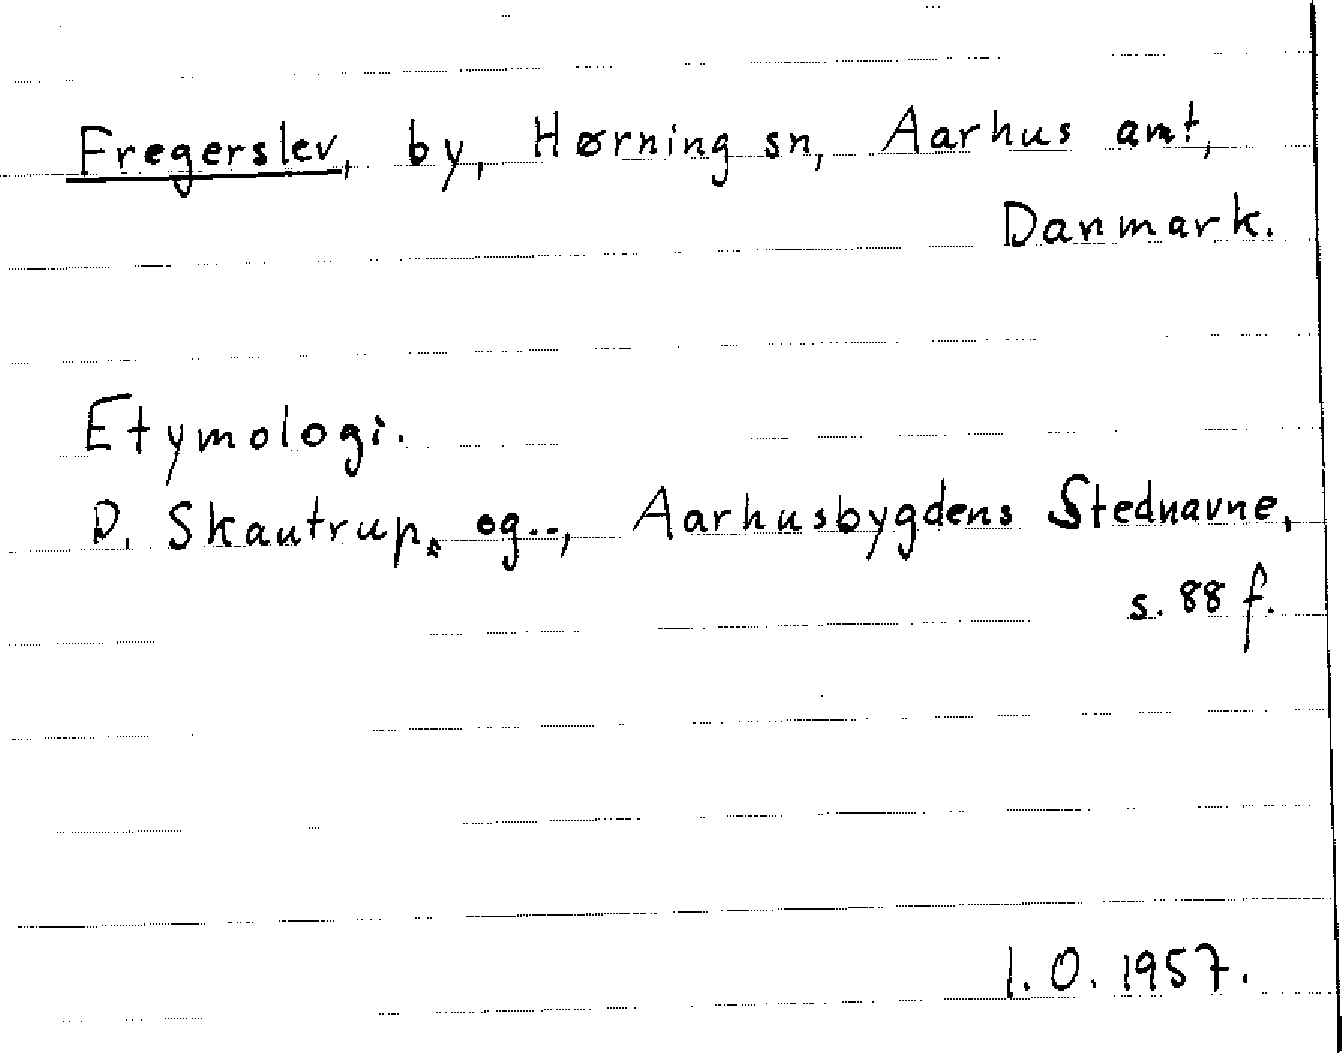 Fregerslev, by, Hørning sn, Aarhus amt,
Danmark.
Etymologi.
P. Skautrup, og.., Aarhusbygdens Stednavne,
s. 88 f.
I. O. 1957.